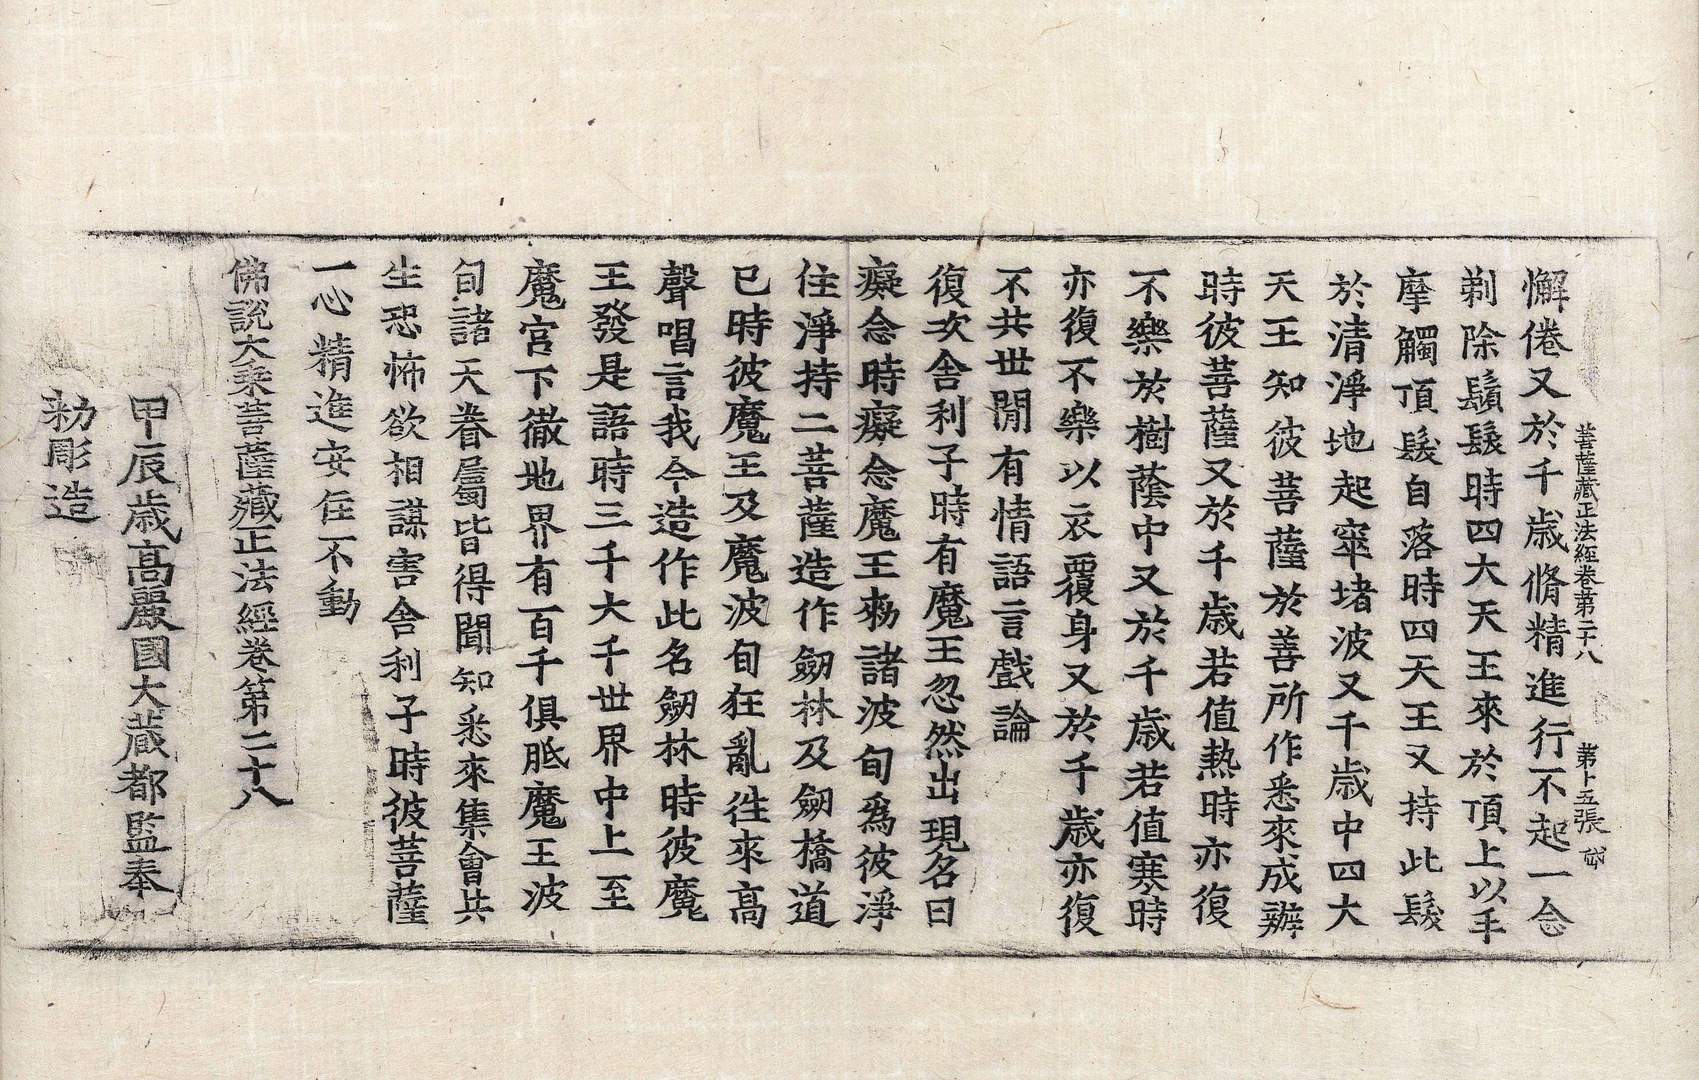 菩薩藏正法經卷第二十八 第十五張
懈倦又於千歲脩精進行不起一念
剃除鬚髮時四大天王來於頂上以手
摩觸頂髮自落時四天王又持此髮
於清淨地起窣堵波又千歲中四大
天王知彼菩薩於善所作悉來成辦
時彼菩薩又於千歲若值熱時亦復
不樂於樹蔭中又於千歲若值寒時
亦復不樂以衣覆身又於千歲亦復
不共世間有情語言戲論
復次舍利子時有魔王忽然出現名曰
癡念時癡念魔王勑諸波旬爲彼淨
住淨持二菩薩造作劒林及劒橋道
已時彼魔王及魔波旬狂亂往來高
聲唱言我今造作此名劒林時彼魔
王發是語時三千大千世界中上至
魔宮下徹地界有百千俱胝魔王波
旬諸天眷屬皆得聞知悉來集會共
生恐怖欲相謀害舍利子時彼菩薩
一心精進安住不動
佛說大乘菩薩藏正法經卷第二十八
甲辰歲高麗國大藏都監奉
勑彫造